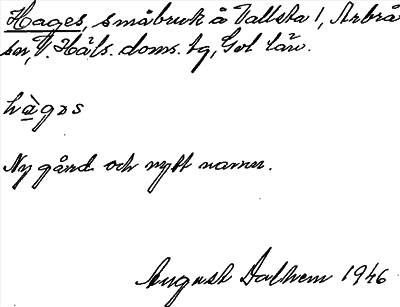 Hages, småbruk å Vallsta 1, Arbrå
sn, V. Häls. doms. tg, Gvl län.
hàgǝs
Ny gård och nytt namn.
August Dalhem 1946